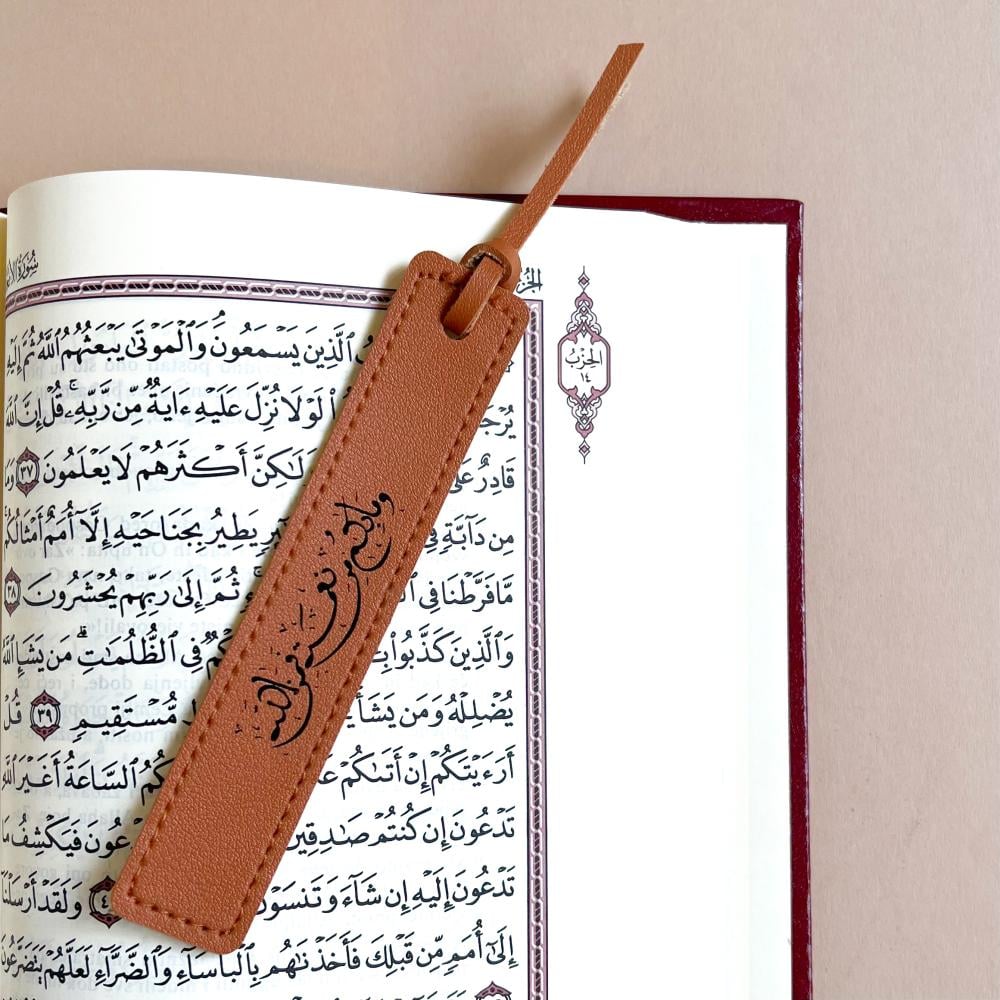 الحِزْبُ
١٤
ٱلَّذِينَ يَسْمَعُونَ وَٱلْمَوْتَىٰ يَبْعَثُهُمُ ٱللَّهُ ثُمَّ إِلَيْهِ
لَوْلَا نُزِّلَ عَلَيْهِ ءَايَةٌ مِّن رَّبِّهِۦ ۚ قُلْ إِنَّ ٱللَّهَ
قَادِرٌ عَلَىٰ وَلَٰكِنَّ أَكْثَرَهُمْ لَا يَعْلَمُونَ ٣٧
مِن دَآبَّةٍ فِي يَطِيرُ بِجَنَاحَيْهِ إِلَّآ أُمَمٌ أَمْثَالُكُم
مَّا فَرَّطْنَا فِي ثُمَّ إِلَىٰ رَبِّهِمْ يُحْشَرُونَ ٣٨
وَٱلَّذِينَ كَذَّبُوا۟ فِي ٱلظُّلُمَٰتِ ۗ مَن يَشَإِ ٱللَّهُ
يُضْلِلْهُ وَمَن يَشَأْ مُّسْتَقِيمٍ ٣٩ قُلْ
أَرَءَيْتَكُمْ إِنْ أَتَىٰكُمْ ٱلسَّاعَةُ أَغَيْرَ ٱللَّهِ
تَدْعُونَ إِن كُنتُمْ صَٰدِقِينَ فَيَكْشِفُ مَا
تَدْعُونَ إِلَيْهِ إِن شَآءَ وَتَنسَوْنَ وَلَقَدْ أَرْسَلْنَآ
إِلَىٰٓ أُمَمٍ مِّن قَبْلِكَ فَأَخَذْنَٰهُم بِٱلْبَأْسَآءِ وَٱلضَّرَّآءِ لَعَلَّهُمْ يَتَضَرَّعُونَ
وما بكم من نعمة فمن الله